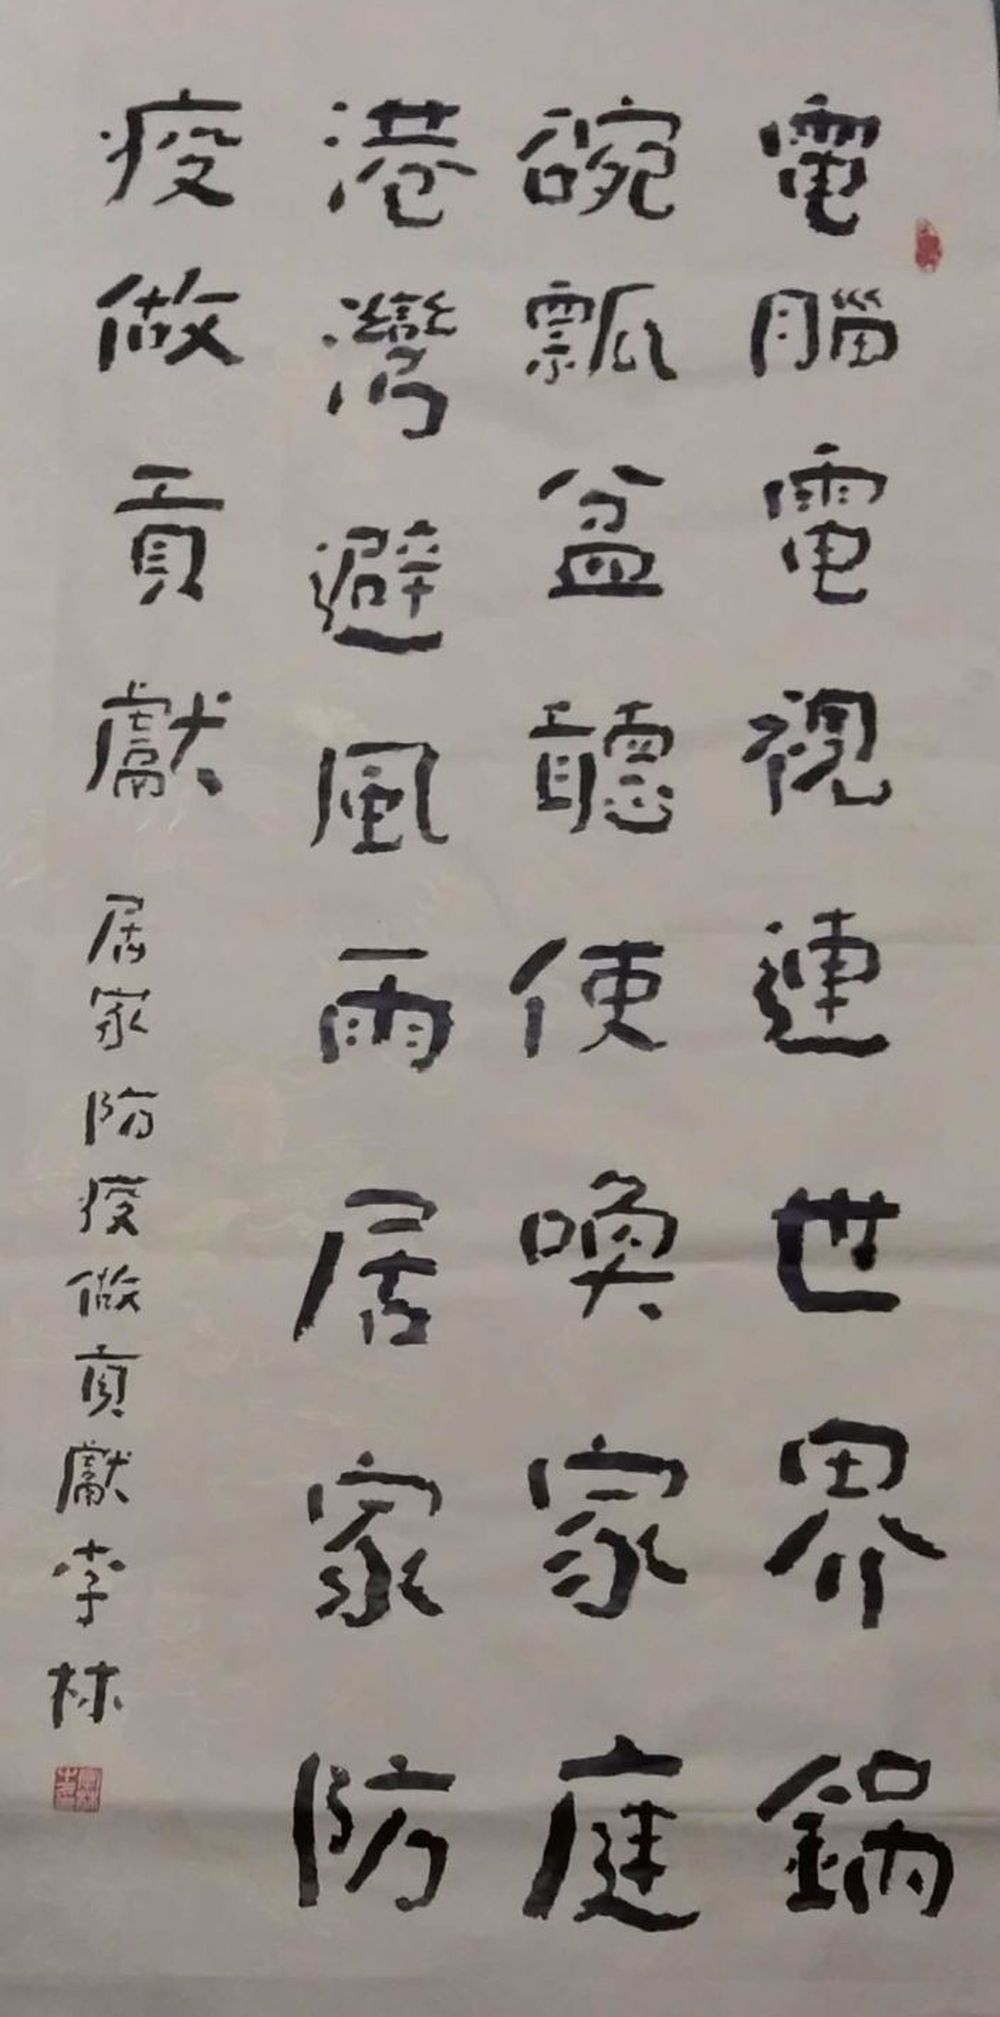 電腦電視連世界鍋
碗瓢盆聽使喚家庭
港灣避風雨居家防
疫做貢獻
居家防疫做貢獻李林